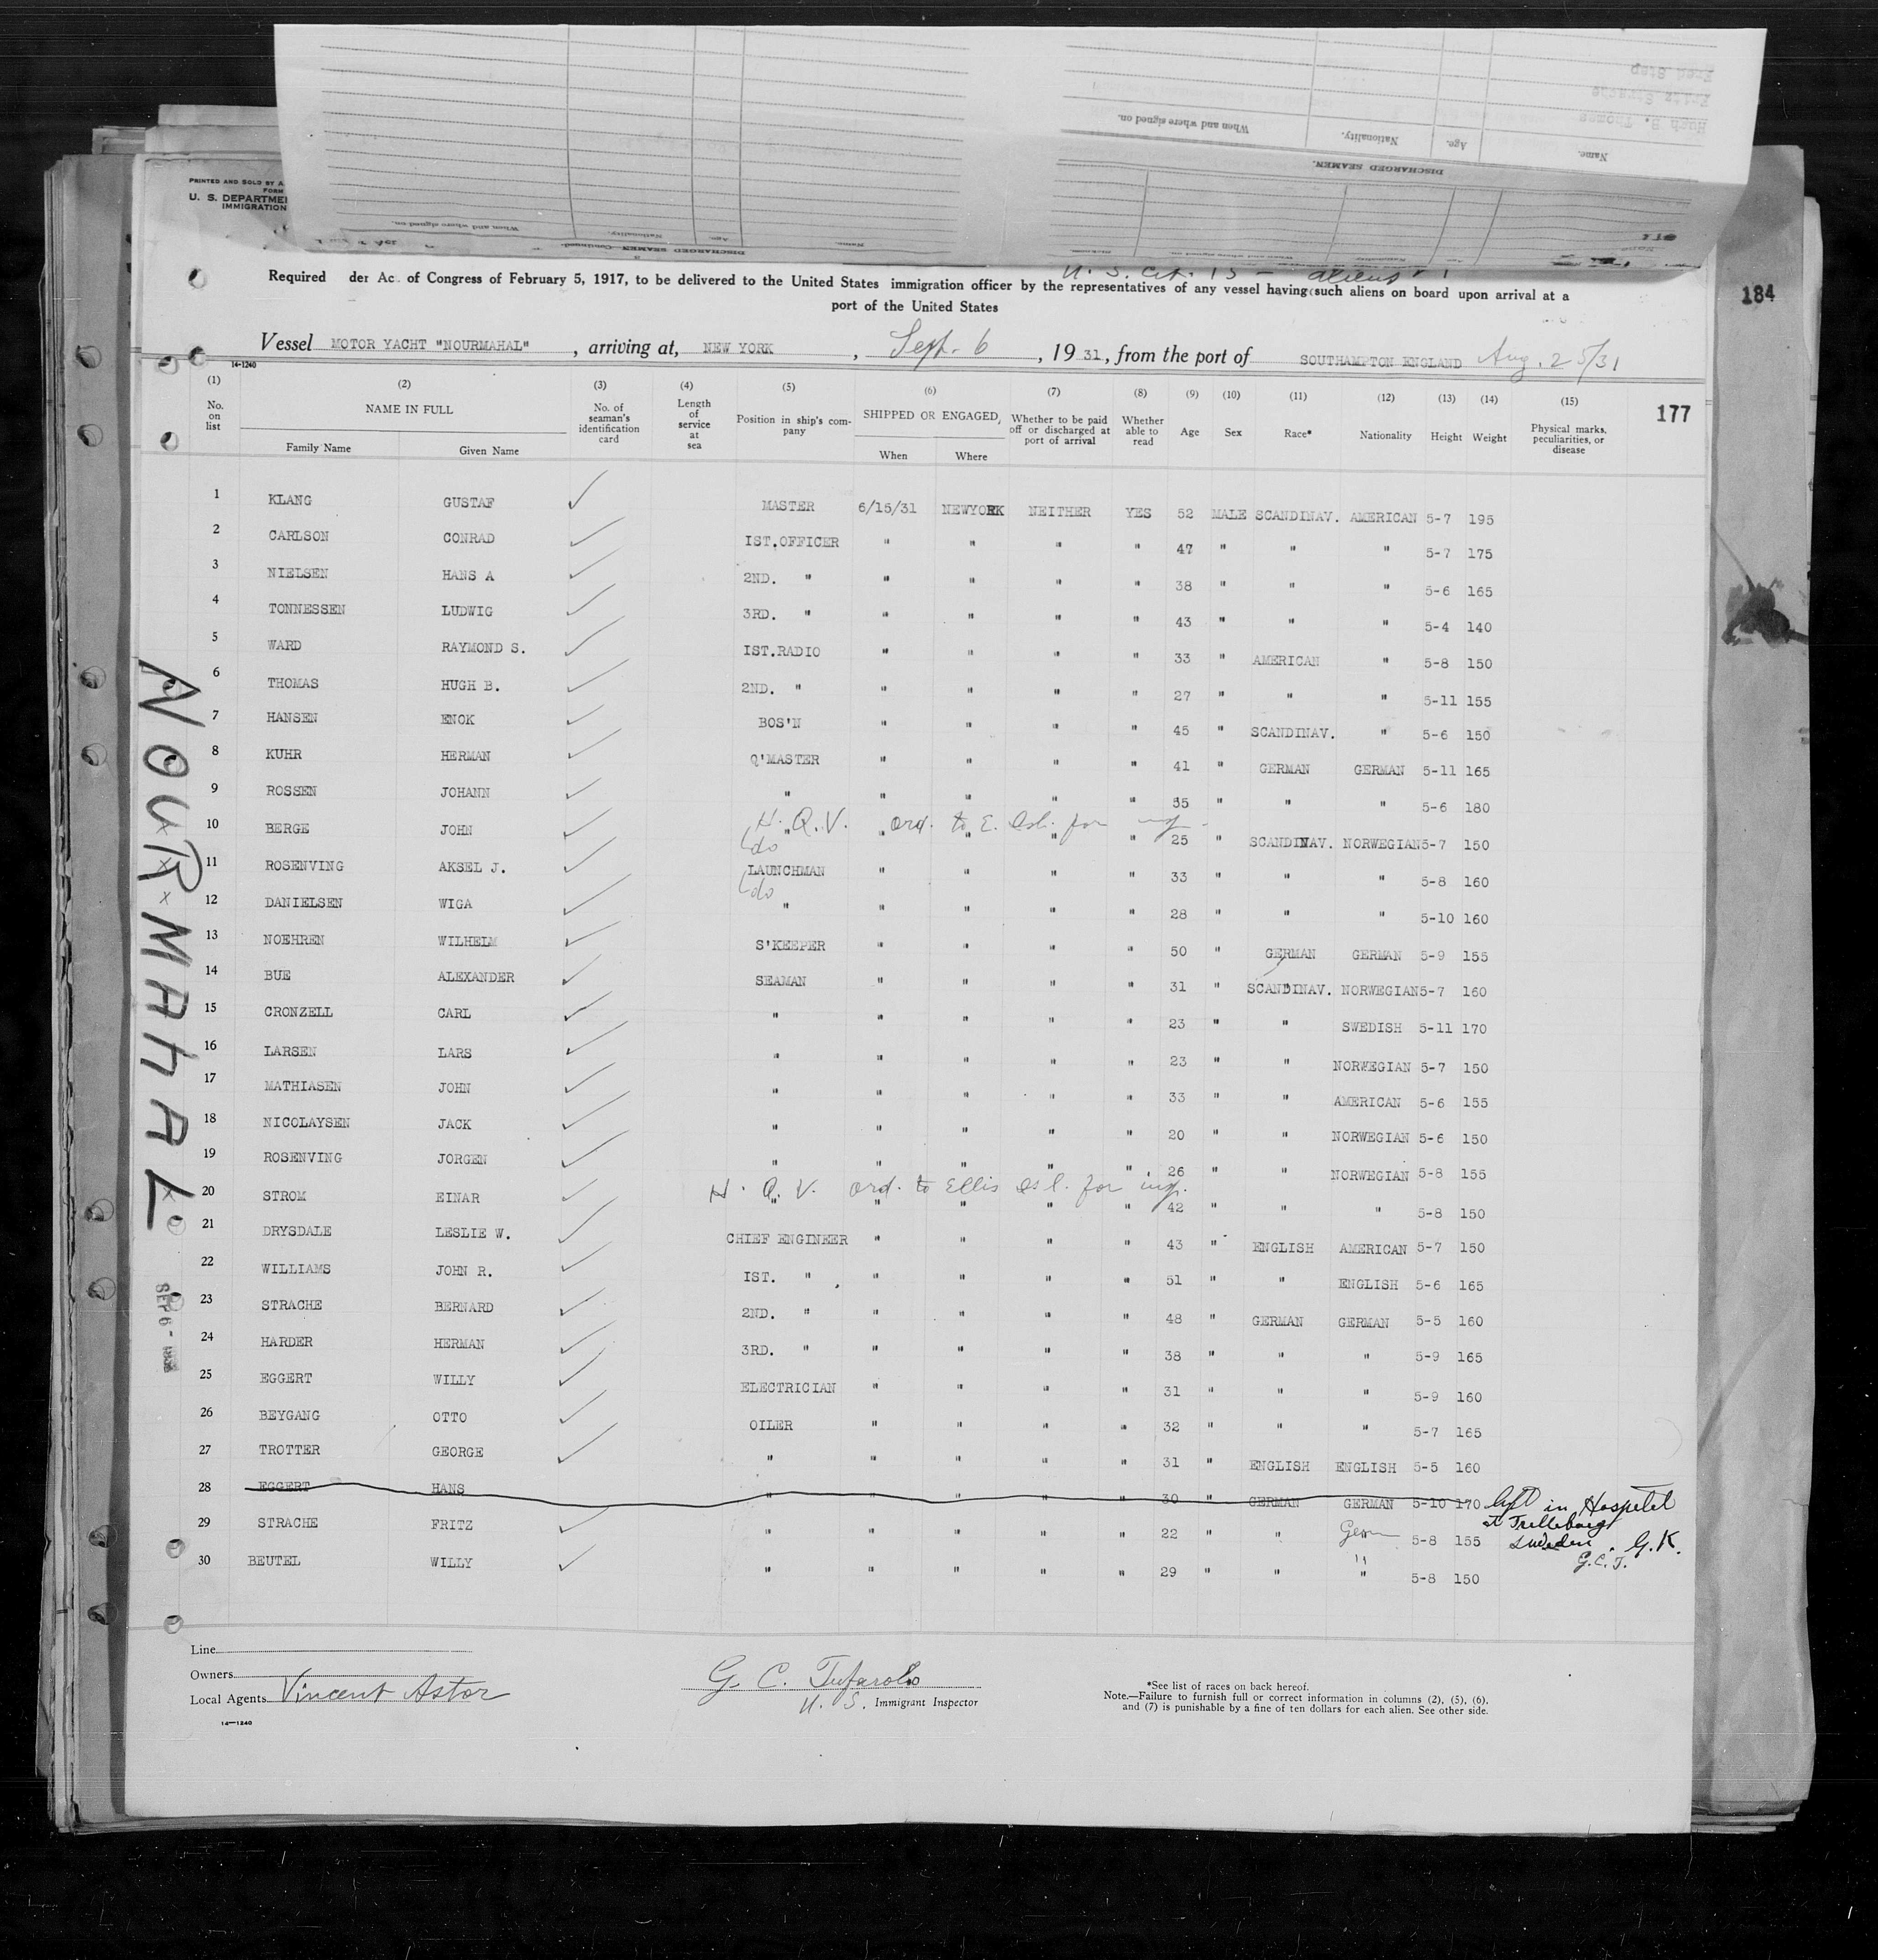 Fred Step
Fritz Strache
Hugh B. Thomas
When and where signed on. Nationality. Age. Name.
DISCHARGED SEAMEN.
When and where signed on. Nationality. Age. Name.
DISCHARGED SEAMEN—Continued.
PRINTED AND SOLD BY A
FORM
U. S. DEPARTMEN
IMMIGRATION
184
U. S. Cit. 13 - aliens
Required der Ac. of Congress of February 5, 1917, to be delivered to the United States immigration officer by the representatives of any vessel having such aliens on board upon arrival at a
port of the United States
Vessel MOTOR YACHT "NOURMAHAL" , arriving at, NEW YORK , Sept. 6 , 19 31, from the port of SOUTHAMPTON ENGLAND Aug. 25/31
14-1240
177
(1) (2) (3) (4) (5) (6) (7) (8) (9) (10) (11) (12) (13) (14) (15)
No. on list NAME IN FULL Family Name Given Name No. of seaman's identification card Length of service at sea Position in ship's company SHIPPED OR ENGAGED, When Where Whether to be paid off or discharged at port of arrival Whether able to read Age Sex Race* Nationality Height Weight Physical marks, peculiarities, or disease
1 KLANG GUSTAF ✓ MASTER 6/15/31 NEWYORK NEITHER YES 52 MALE SCANDINAV. AMERICAN 5-7 195
2 CARLSON CONRAD ✓ IST.OFFICER " " " " 47 " " " 5-7 175
3 NIELSEN HANS A ✓ 2ND. " " " " " 38 " " " 5-6 165
4 TONNESSEN LUDWIG ✓ 3RD. " " " " " 43 " " " 5-4 140
5 WARD RAYMOND S. ✓ IST.RADIO " " " " 33 " AMERICAN " 5-8 150
6 THOMAS HUGH B. ✓ 2ND. " " " " " 27 " " " 5-11 155
7 HANSEN ENOK ✓ BOS'N " " " " 45 " SCANDINAV. " 5-6 150
8 KUHR HERMAN ✓ Q'MASTER " " " " 41 " GERMAN GERMAN 5-11 165
9 ROSSEN JOHANN ✓ " " " " " 35 " " " 5-6 180
H. Q. V. ord. to E. Isl. for inq.
10 BERGE JOHN ✓ " " " " " 25 " SCANDINAV. NORWEGIAN 5-7 150
do
11 ROSENVING AKSEL J. ✓ LAUNCHMAN " " " " 33 " " " 5-8 160
do
12 DANIELSEN WIGA ✓ " " " " " 28 " " " 5-10 160
13 NOEHREN WILHELM ✓ S'KEEPER " " " " 50 " GERMAN GERMAN 5-9 155
14 BUE ALEXANDER ✓ SEAMAN " " " " 31 " SCANDINAV. NORWEGIAN 5-7 160
15 CRONZELL CARL ✓ " " " " " 23 " " SWEDISH 5-11 170
16 LARSEN LARS ✓ " " " " " 23 " " NORWEGIAN 5-7 150
17 MATHIASEN JOHN ✓ " " " " " 33 " " AMERICAN 5-6 155
18 NICOLAYSEN JACK ✓ " " " " " 20 " " NORWEGIAN 5-6 150
19 ROSENVING JORGEN ✓ " " " " " 26 " " NORWEGIAN 5-8 155
H. Q. V. ord. to Ellis Isl. for inq.
20 STROM EINAR ✓ " " " " " 42 " " " 5-8 150
21 DRYSDALE LESLIE W. ✓ CHIEF ENGINEER " " " " 43 " ENGLISH AMERICAN 5-7 150
22 WILLIAMS JOHN R. ✓ IST. " " " " " 51 " " ENGLISH 5-6 165
23 STRACHE BERNARD ✓ 2ND. " " " " " 48 " GERMAN GERMAN 5-5 160
24 HARDER HERMAN ✓ 3RD. " " " " " 38 " " " 5-9 165
25 EGGERT WILLY ✓ ELECTRICIAN " " " " 31 " " " 5-9 160
26 BEYGANG OTTO ✓ OILER " " " " 32 " " " 5-7 165
27 TROTTER GEORGE ✓ " " " " " 31 " ENGLISH ENGLISH 5-5 160
28 EGGERT HANS " " " " " 30 " GERMAN GERMAN 5-10 170 left in Hospital
at Trelleborg
Sweden. G.K.
G.C.T.
29 STRACHE FRITZ ✓ " " " " " 22 " " Germ 5-8 155
30 BEUTEL WILLY ✓ " " " " " 29 " " " 5-8 150
NOURMAHAL
SEP 6 - 1931
Line
Owners
Local Agents Vincent Astor
14—1240
G. C. Tufarolo
U. S. Immigrant Inspector
*See list of races on back hereof.
Note.—Failure to furnish full or correct information in columns (2), (5), (6),
and (7) is punishable by a fine of ten dollars for each alien. See other side.